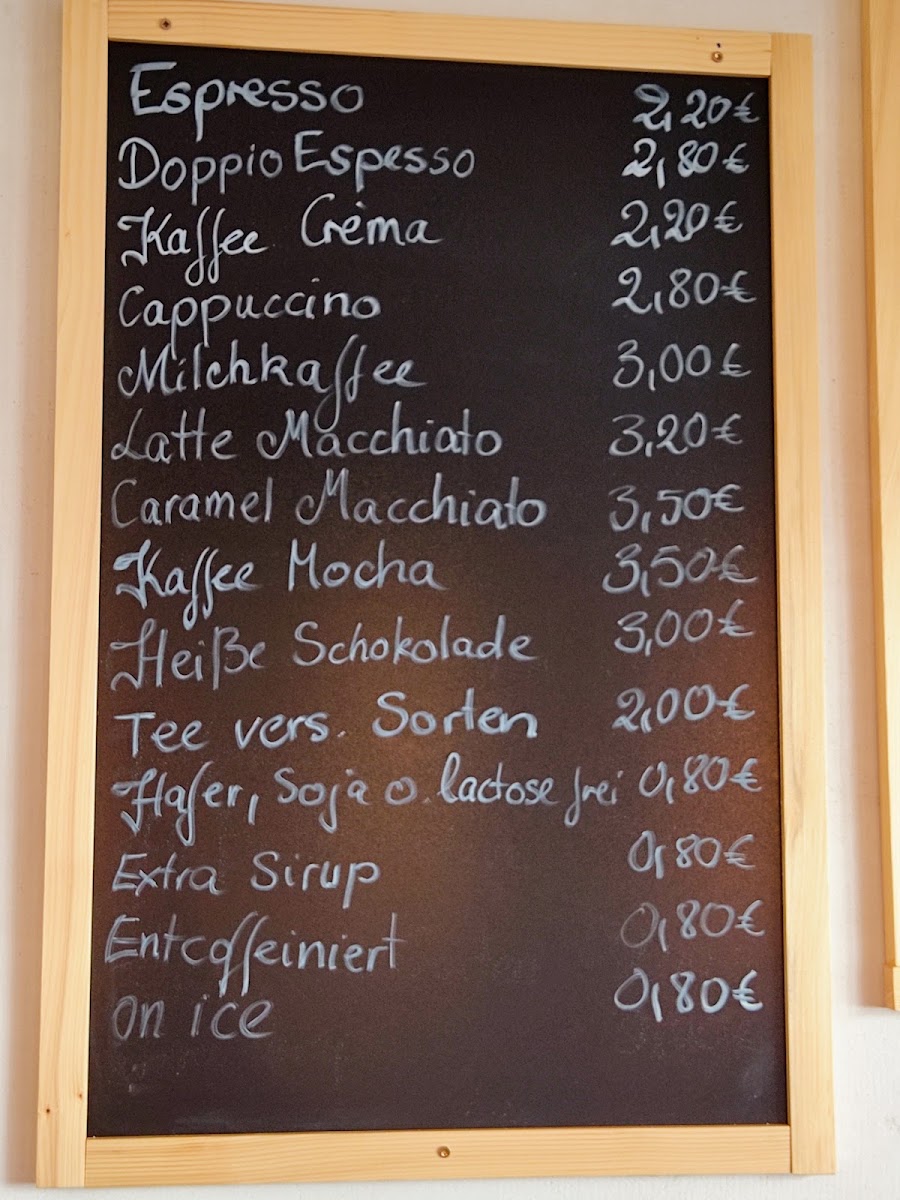 Espresso 2,20€
Doppio Espesso 2,80€
Kaffee Crèma 2,20€
Cappuccino 2,80€
Milchkaffee 3,00€
Latte Macchiato 3,20€
Caramel Macchiato 3,50€
Kaffee Mocha 3,50€
Heiße Schokolade 3,00€
Tee vers. Sorten 2,00€
Hafer, Soja o. lactose frei 0,80€
Extra Sirup 0,80€
Entcoffeiniert 0,80€
on ice 0,80€